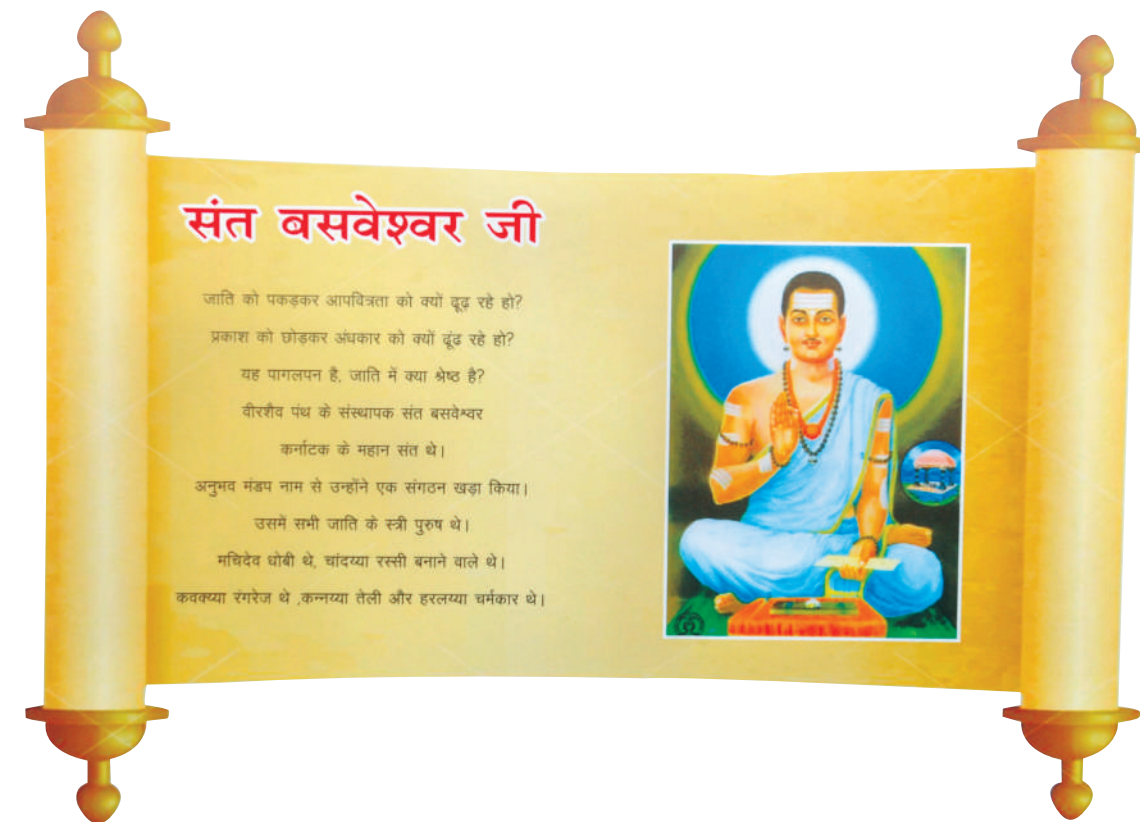 संत बसवेश्वर जी
जाति को पकड़कर आपवित्रता को क्यों ढूढ़ रहे हो?
प्रकाश को छोड़कर अंधकार को क्यों ढूंढ रहे हो?
यह पागलपन है, जाति में क्या श्रेष्ठ है?
वीरशैव पंथ के संस्थापक संत बसवेश्वर
कर्नाटक के महान संत थे।
अनुभव मंडप नाम से उन्होंने एक संगठन खड़ा किया।
उसमें सभी जाति के स्त्री पुरुष थे।
मचिदेव धोबी थे, चांदय्या रस्सी बनाने वाले थे।
कवक्य्या रंगरेज थे ,कन्नय्या तेली और हरलय्या चर्मकार थे।